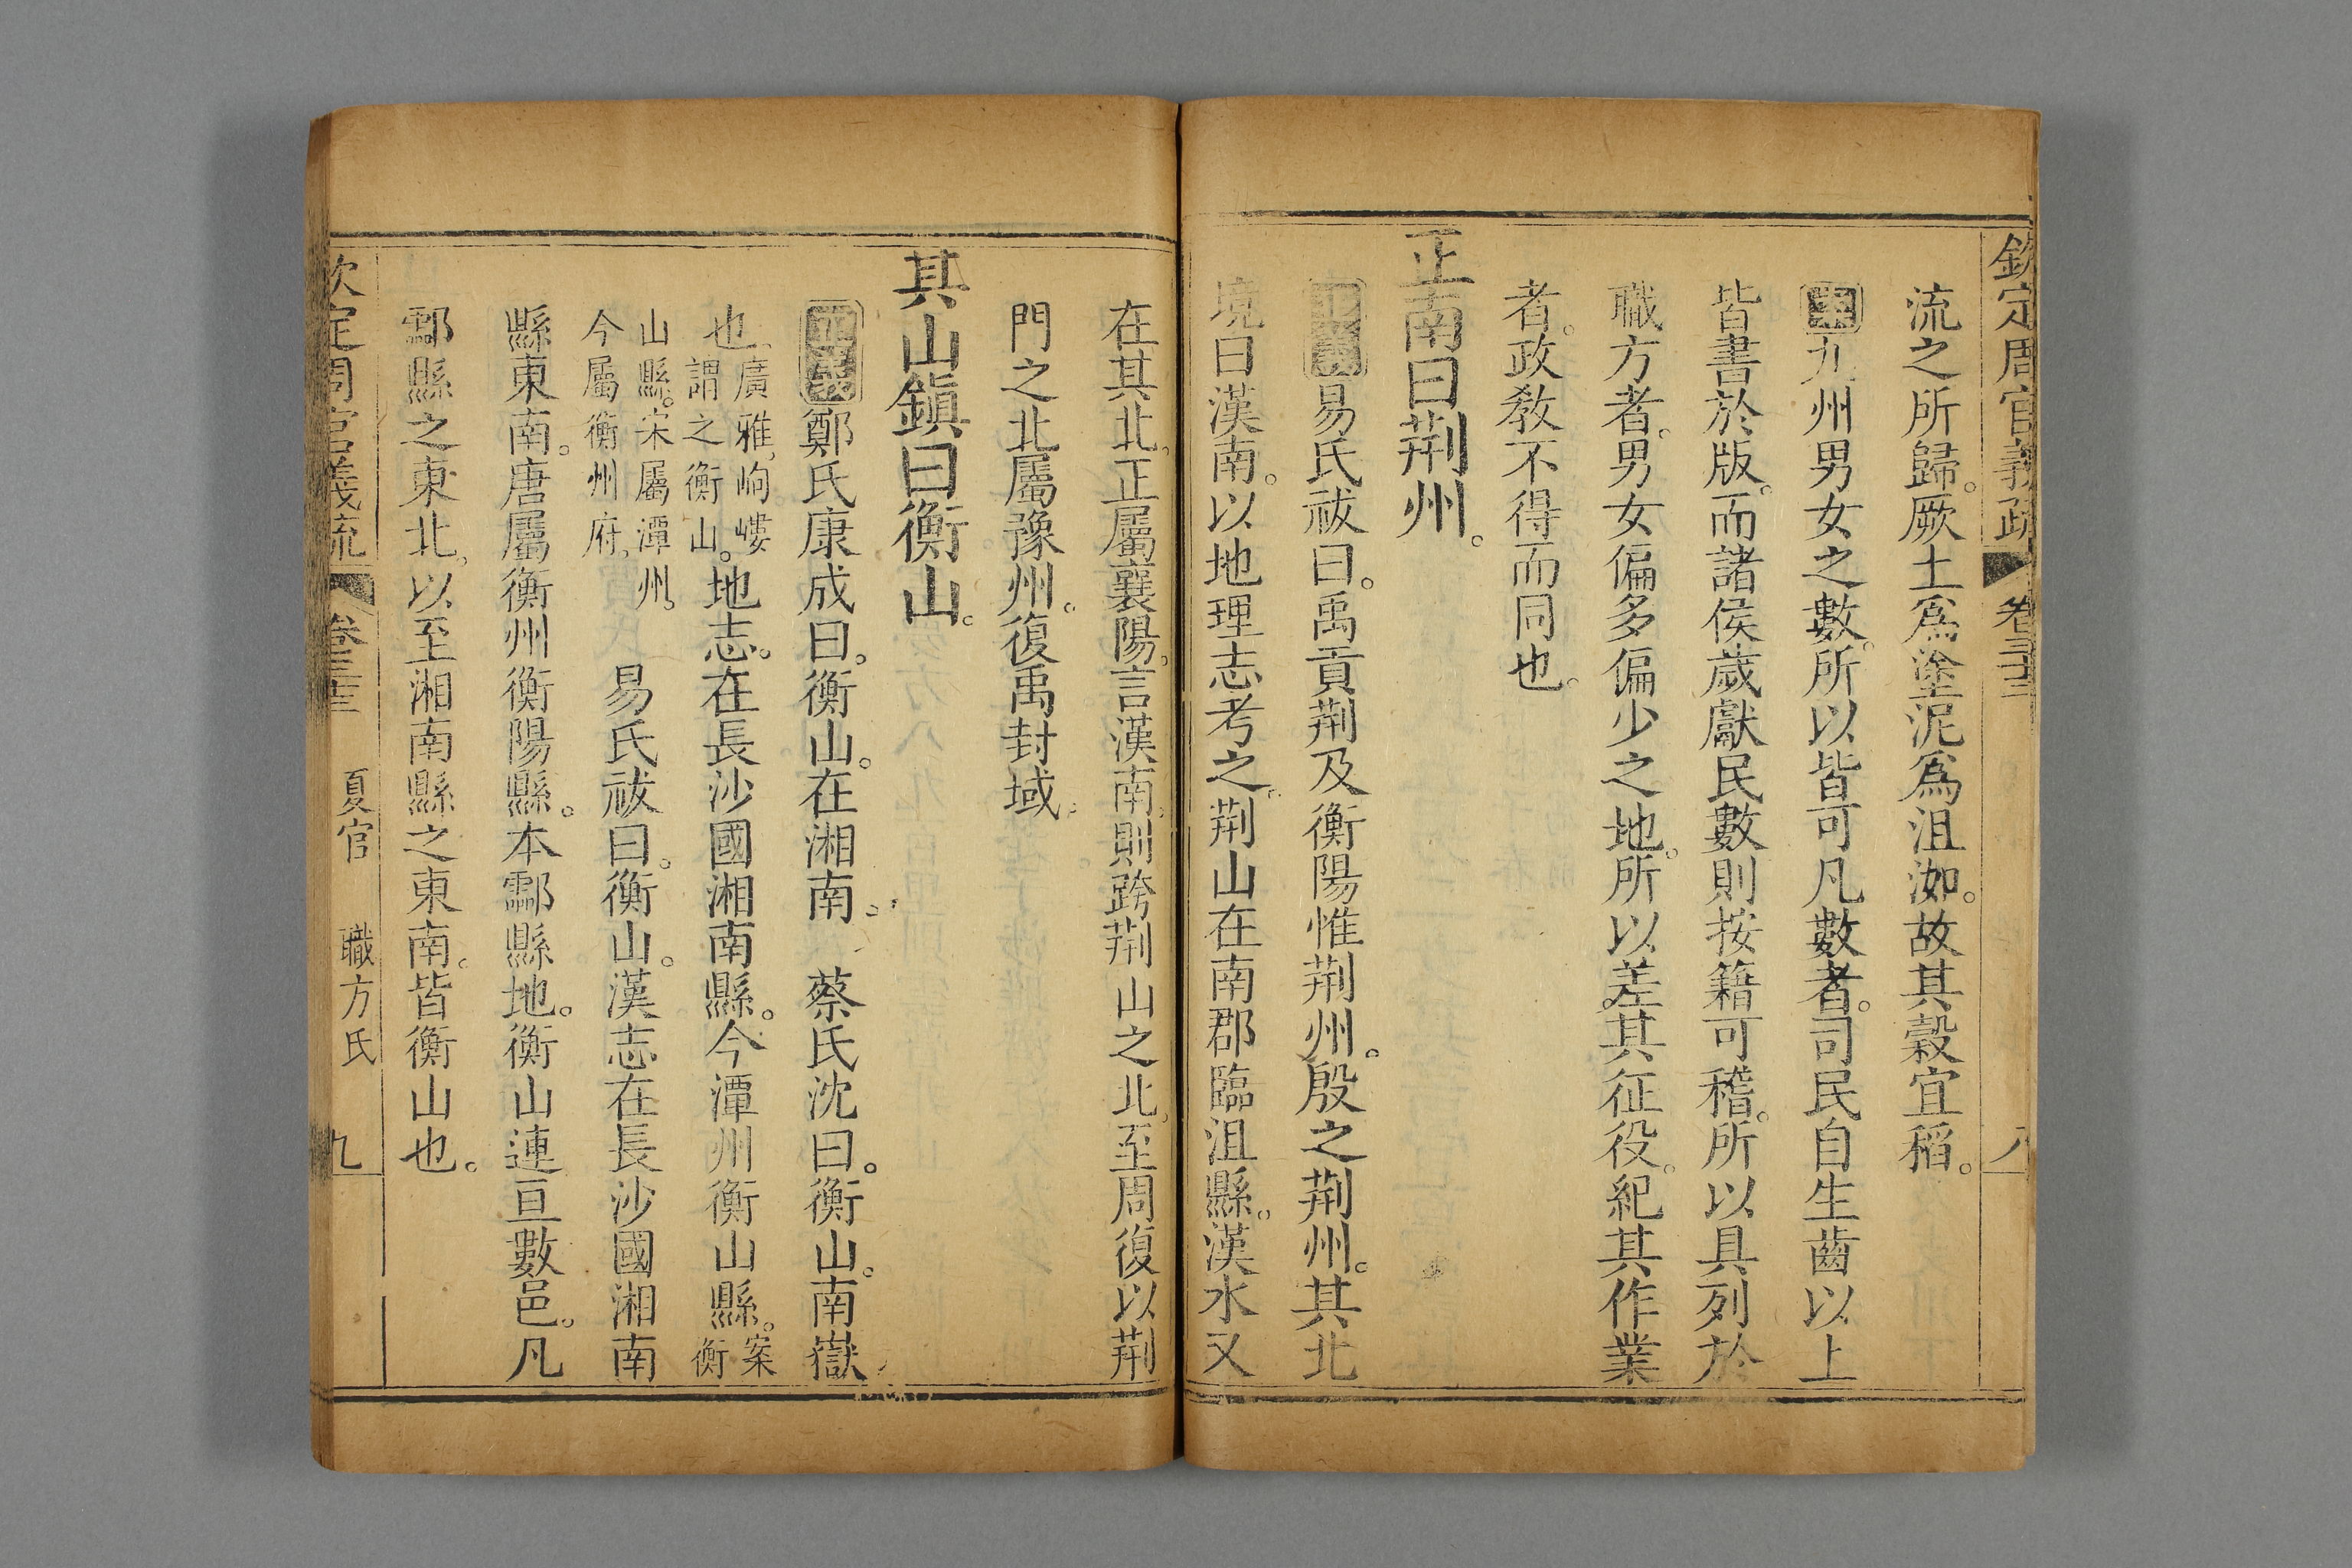 欽定周官義疏 卷三十三 八
流之所歸。厥土爲塗泥爲沮洳。故其穀宜稻。
案九州男女之數。所以皆可凡數者。司民自生齒以上
皆書於版。而諸侯歲獻民數則按籍可稽。所以具列於
職方者。男女偏多偏少之地。所以差其征役。紀其作業
者。政教不得而同也。
正南曰荆州。
正義易氏祓曰。禹貢荆及衡陽惟荆州。殷之荆州。其北
境曰漢南。以地理志考之。荆山在南郡臨沮縣。漢水又
在其北。正屬襄陽。言漢南。則跨荆山之北。至周復以荆
門之北屬豫州。復禹封域。
其山鎭曰衡山。
正義鄭氏康成曰。衡山。在湘南。 蔡氏沈曰。衡山。南嶽
也。廣雅。岣嶁謂之衡山。地志。在長沙國湘南縣。今潭州衡山縣。案衡
山縣。宋屬潭州。今屬衡州府。 易氏祓曰。衡山。漢志在長沙國湘南
縣東南。唐屬衡州衡陽縣。本酃縣地。衡山連亘數邑。凡
酃縣之東北。以至湘南縣之東南。皆衡山也。
欽定周官義疏 卷三十三 夏官 職方氏 九